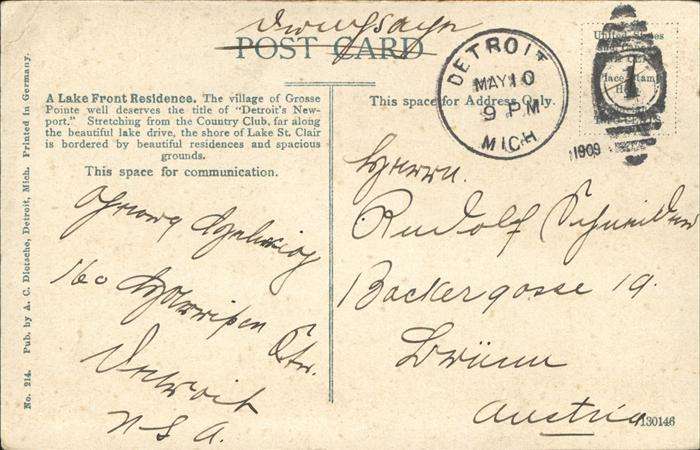 POST CARD
DETROIT
MAY 10
9 PM
MICH
1909
1
United States
Place Stamp
No. 214. Pub. by A. C. Dietsche, Detroit, Mich. Printed in Germany.
A Lake Front Residence. The village of Grosse
Pointe well deserves the title of "Detroit's New-
port." Stretching from the Country Club, far along
the beautiful lake drive, the shore of Lake St. Clair
is bordered by beautiful residences and spacious
grounds.
This space for communication.
Georg
160 Harrison
Str.
Detroit
USA.
This space for Address Only.
Herrn.
Rudolf Schneider
Backergasse 19.
Brünn
Austria
130146